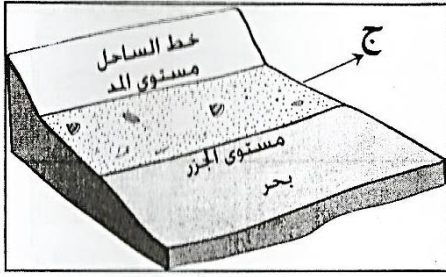 خط الساحل
مستوى المد
ج
مستوى الجزر
بحر